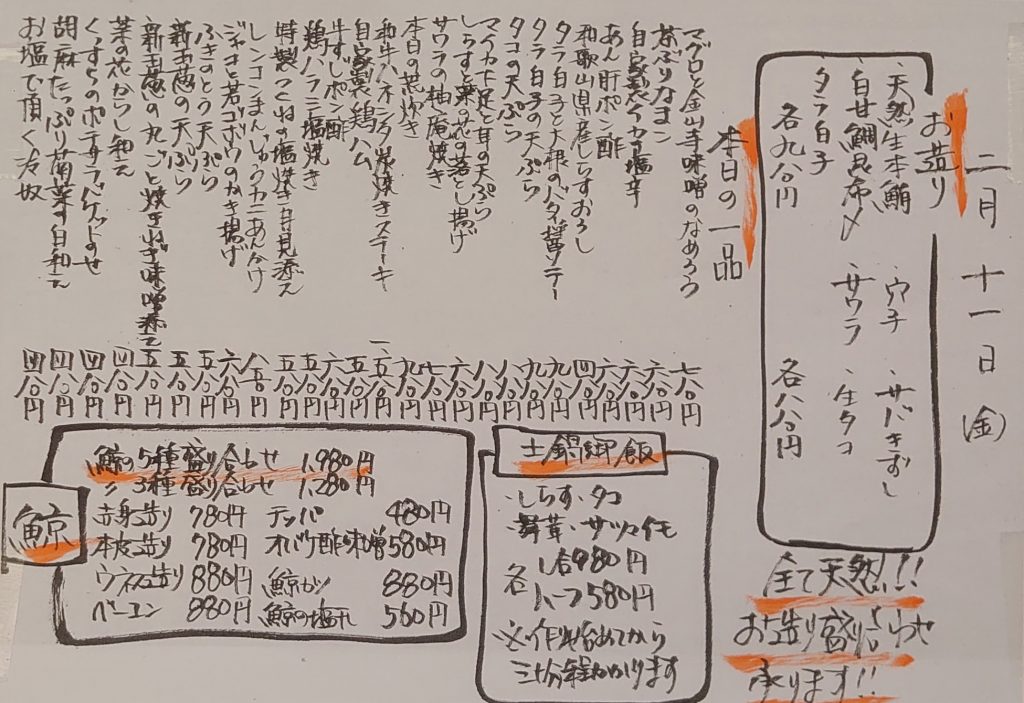 二月 十一日(金)
お造り
・天然生本鮪
・白甘鯛昆布〆
・タラ白子
各九八〇円
・穴子 ・サバきずし
・サワラ ・生タコ
各八八〇円
全て天然!!
お造り盛り合わせ
承ります!!
本日の一品
マグロと金山寺味噌のなめろう 七八〇円
茶ぶりなまこ 六八〇円
自家製イカの塩辛
あん肝ポン酢
和歌山県産しらすおろし
タラ白子と大根のバター醤油ソテー
タラ白子の天ぷら
タコの天ぷら
マイカ下足と耳の天ぷら
しらすと菜の花の落とし揚げ
サワラの柚庵焼き
本日の煮炊き
和牛ハネシタ炭焼きステーキ 一、五八〇円
自家製鶏ハム 五八〇円
牛すじポン酢 六八〇円
鶏ハラミ塩焼き 五八〇円
特製つくねの塩焼き月見添え 五八〇円
レンコンまんじゅうカニあんかけ 八五〇円
ジャコと若ゴボウのかき揚げ 六八〇円
ふきのとう天ぷら 五八〇円
新玉葱の天ぷら 五八〇円
新玉葱の丸ごと焼きねぎ味噌添え 五八〇円
菜の花からし和え 四八〇円
くっすらのポテサラバケットのせ 四八〇円
胡麻たっぷり菊菜す白和え 四八〇円
お塩で頂く冷奴 四八〇円
土鍋御飯
・しらす・タコ
・舞茸・サツマイモ
各 一合980円
ハーフ580円
※作り始めてから
三十分程かかります
鯨
鯨の5種盛り合わせ 1,980円
〃 3種盛り合わせ 1,280円
赤身造り 780円 テッパ 480円
本皮造り 780円 オバケ酢味噌 580円
ウネス造り 880円 鯨カツ 880円
ベーコン 880円 鯨の塩干 560円